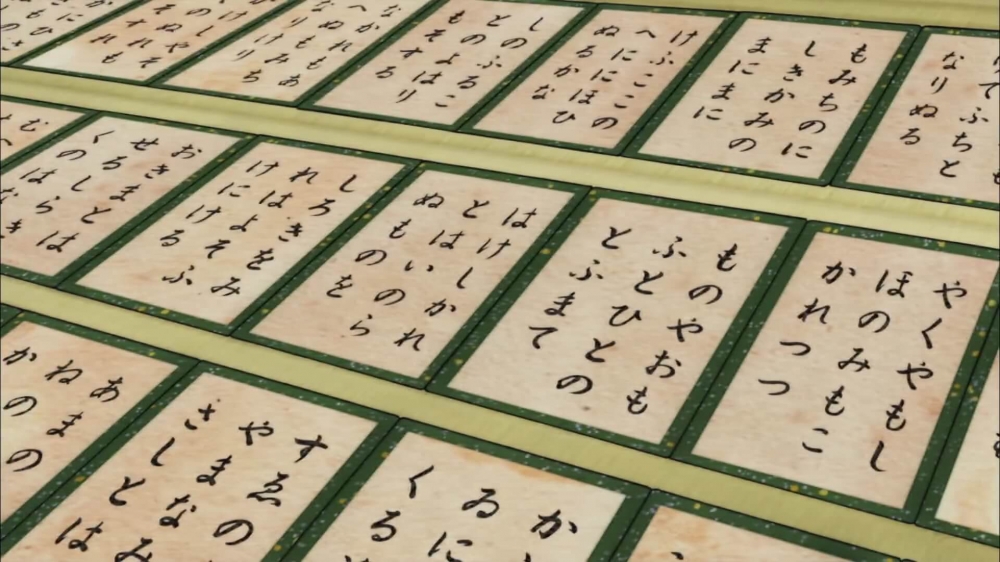 りてふちと
なりぬる
もみちのに
しきかみの
まにまに
けふここの
へににほひ
ぬるかな
しのふるこ
とのよはり
もそする
なかれもあ
へぬもみち
なりけり
やくやもし
ほのみもこ
かれつつ
ものやおも
ふとひとの
とふまて
はけしかれ
とはいのら
ぬものを
しろきをみ
れはよそふ
けにける
おきまとは
せるしらき
くのはな
か
ゐに
くる
すゑの
やまなみ
さしとは
あまの
ねの
か